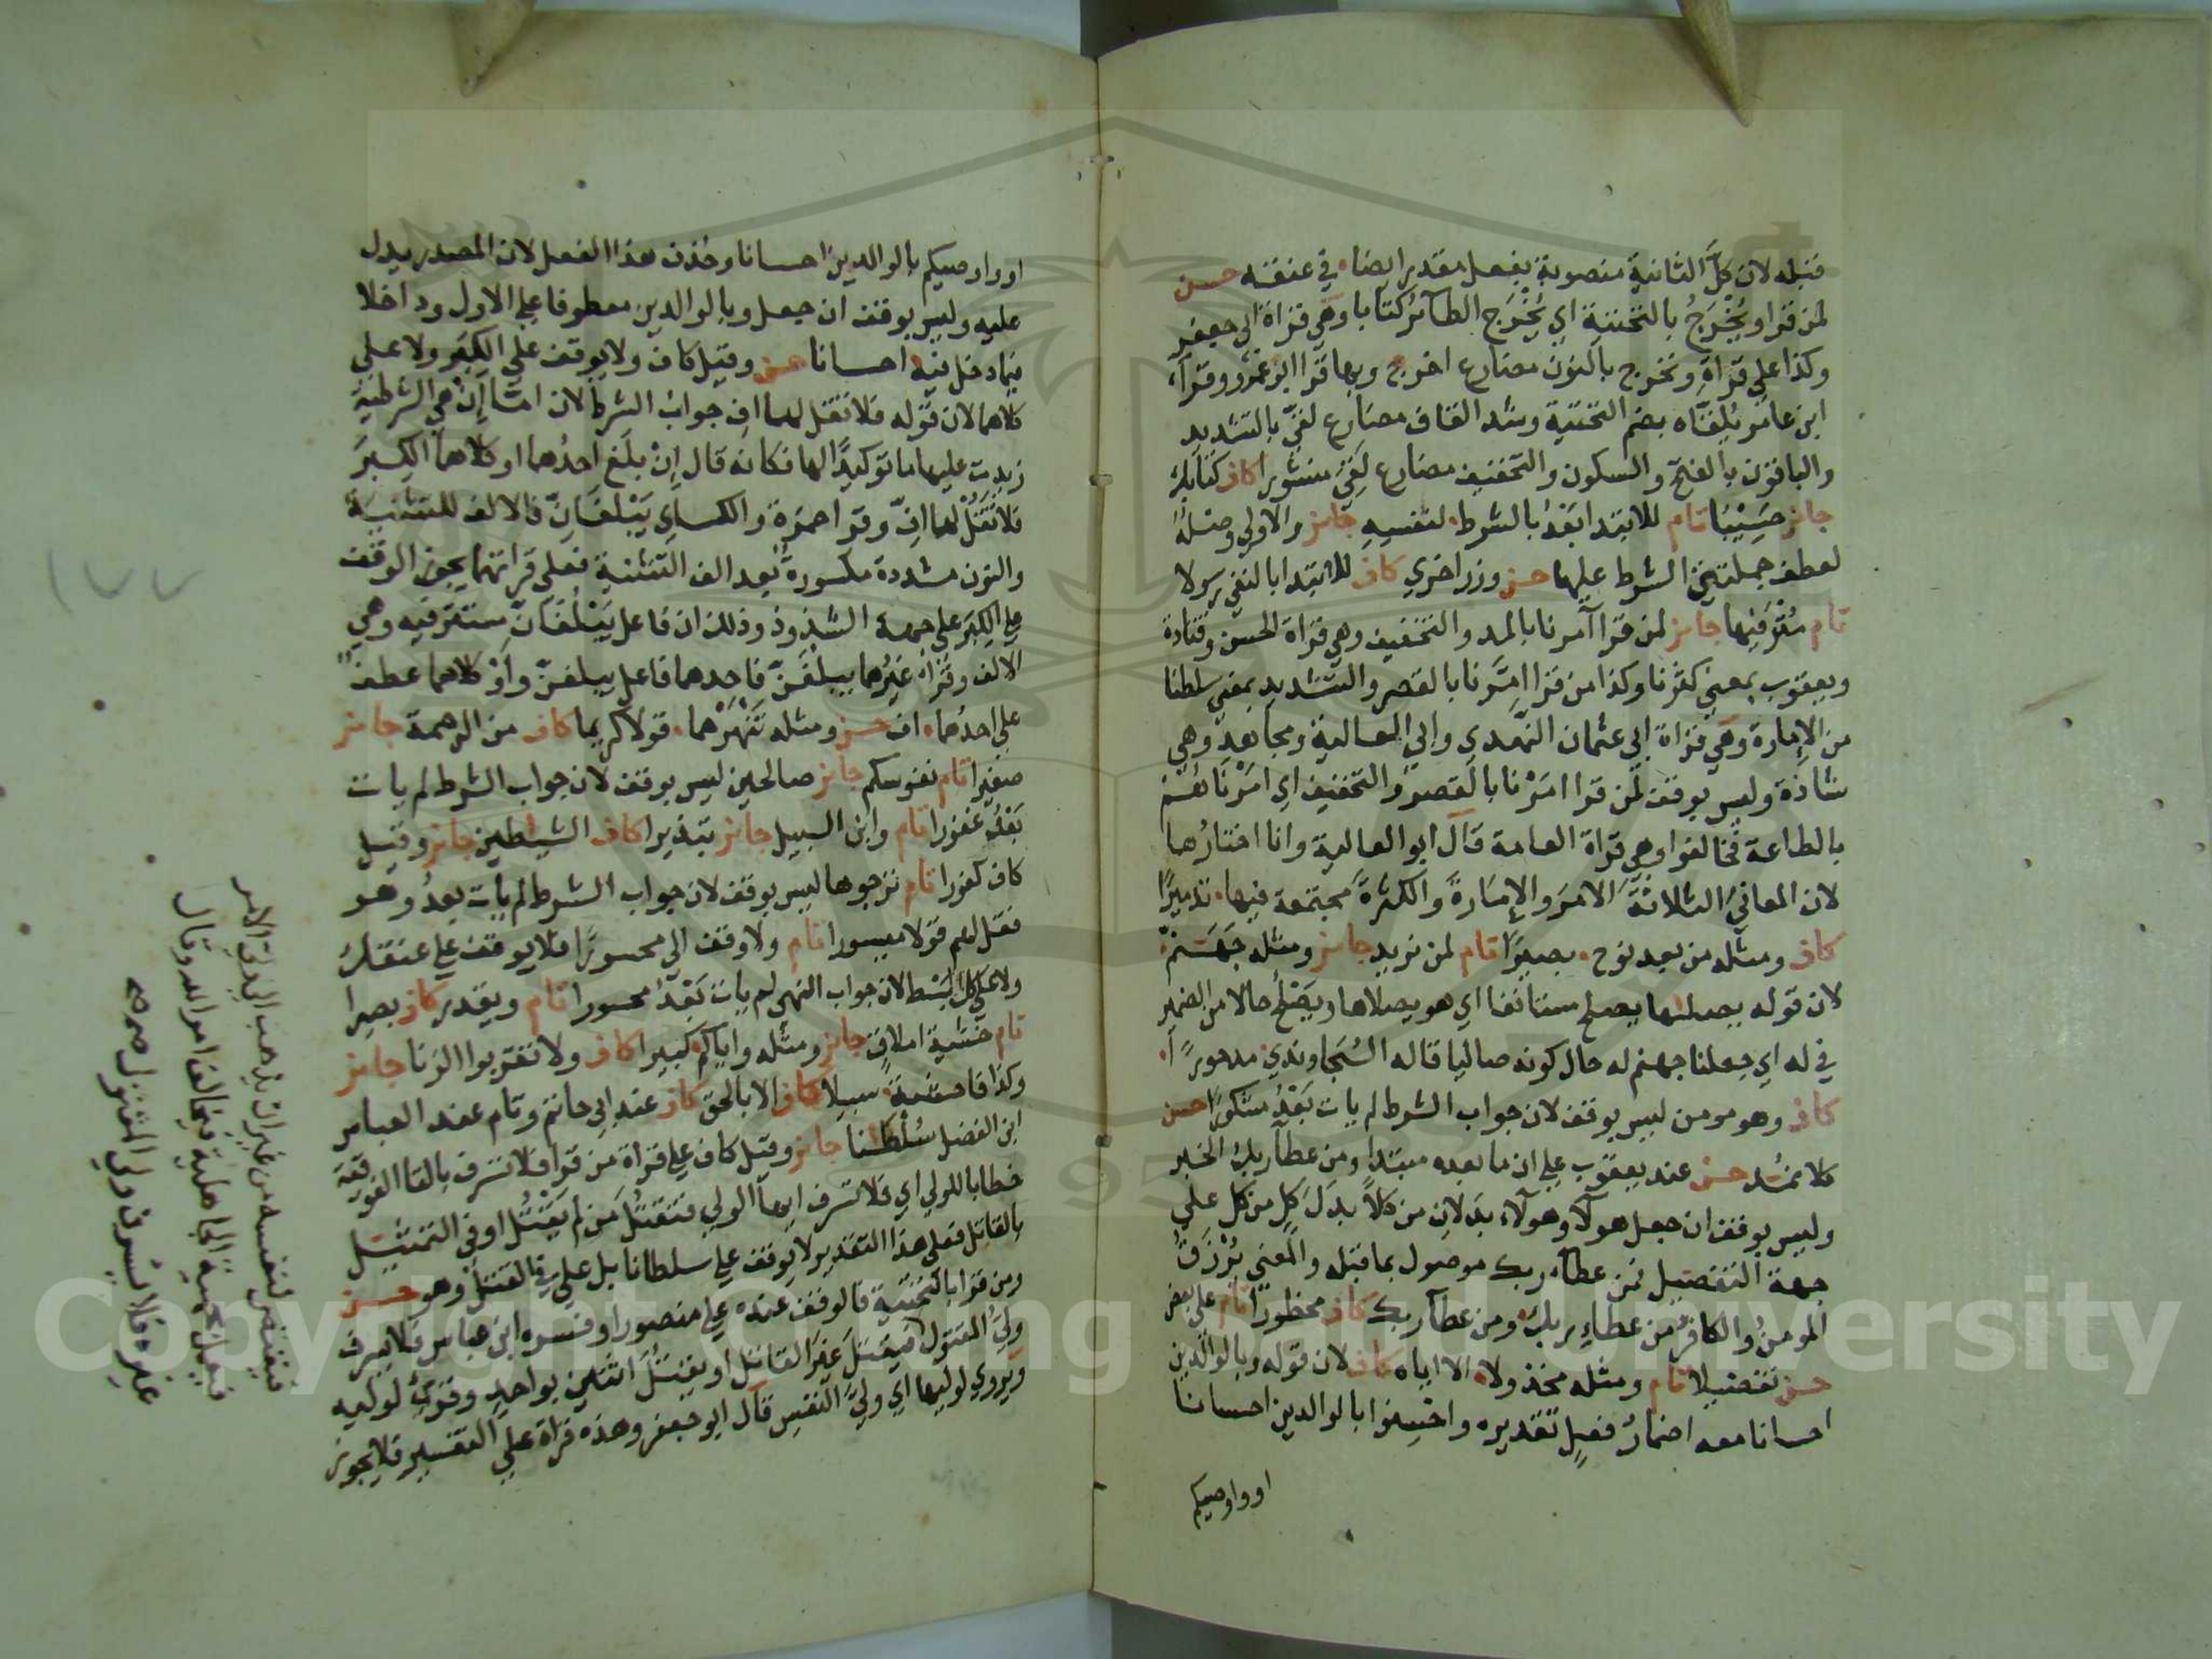 قبله لان كلَّ الثانية منصوبة بفعل مقدر ايضا، في عنقه حسن
لمن قرا ويُخْرَجُ بالتحتية اي يُخْرَج الطآئر كتابا وهي قراة ابي جعفر
وكذا على قراةِ ونخرج بالنون مضارع اخرج وبها قرا ابو عمرو وقرآءة
ابن عامر يُلَقّاه بضم التحتية وشد القاف مضارع لقّي بالتشديد
والباقون بالفتح والسكون والتخفيف مضارع لَقِيَ منشورا كاف كتابك
جائز حسيبًا تام للابتدا بَعْدُ بالشرط لنفسه جائز والاولى وصله
لعطف جملتي الشرط عليها حسن وزر اخرى كاف للابتدا بالنفي رسولا
تام مُتْرَفيها جائز لمن قرا آمرنا بالمد والتخفيف وهي قراة الحسن وقتادة
ويعقوب بمعنى كثرنا وكذا من قرا امَّرنا بالقصر والتشديد بمعنى سلطنا
من الإمارة وهي قراة ابي عثمان النهدي وابي العالية ومجاهد وهي
شاذة وليس بوقف لمن قرا امَرْنا بالقصر والتخفيف اي امَرْناهُمْ
بالطاعة فخالفوا وهي قراة العامة قال ابو العالية وانا اختارُها
لان المعانيَ الثلاثةَ الامرَ والإمارةَ والكثرةَ مجتمعة فيها، تدميرًا
كاف ومثله من بعد نوح، بصيرًا تام لمن نريد جائز ومثله جَهَنمَ
لان قوله يصلىها يصلح مستانفا اي هو يصلاها ويَصْلُحُ حالا من الضمير
في له اي جعلنا جهنم له حال كونه صاليا قاله السُجاوندي مدحورًا
كاف وهو مومن ليس بوقف لان جواب الشرط لم يات بَعْدُ مشكورًا حسن
كلا نمد حسن عند يعقوب على ان ما بعده مبتدا ومن عطآ ربك الخبر
وليس بوقف ان جعل هولآ وهولآء بدلانِ من كلاً بدلَ كلٍ من كل على
جهة التفصيل فمن عطآء ربك موصول بما قبله والمعنى يُرْزَقُ
المومنُ والكافرُ من عطاءِ ربك ومن عطآ ربك كاف محظورًا تام على بعض
حسن تفضيلا تام ومثله مخذولا، الا اياه كاف لان قوله وبالوالدين
احسانا معه اضمارُ فعلٍ تقديره واحْسِنوا بالوالدين احسانا
او واوصيكم
او واوصيكم بالوالدين احسانا وحذف هذا الفعل لان المصدر يدل
عليه وليس بوقف ان جعل وبالوالدين معطوفا على الاول وداخلا
فيما دخل فيه احسانا حسن وقيل كاف ولا يوقف على الكِبَرِ ولا على
كلاهما لان قوله فلا تقل لهما اف جواب الشرط لان امّا إنْ هي الشرطية
زيدت عليها ما توكيدًا لها فكانه قال إنْ بلَغ احدُهما او كلاهما الكبرَ
فلا تقُلْ لهما افٍّ وقرا حمزة والكساي يَبْلغَانِّ فالالف للتثنية
والنون مشددة مكسورة بعد الف التثنية فعلى قراتهما يجوز الوقف
على الكِبَرِ على جهة الشذوذ وذلك ان فاعل يَبْلُغَانّ مستتر فيه وهي
الالف وقراءَ غيرُهما يبلغَنّ فاحدهما فاعل يبلغنّ وأوْ كلاهما عطفٌ
على احدُهما، اف حسن ومثله تَنْهَرْهما، قولا كريما كاف من الرحمة جائز
صغيرا تام نفوسكم جائز صالحين ليس بوقف لان جواب الشرط لم يات
بَعْدُ غفورا تام وابن السبيل جائز تبذيرا كاف الشيطين جائز وقيل
كاف كفورا تام ترجوها ليس بوقف لان جواب الشرط لم يات بعدُ وهو
فقل لهم قولا ميسورا تام ولا وقف الى محسورًا فلا يوقف على عنقك
ولا على كل البسط لان جواب النهي لم يات بَعْدُ محسورا تام ويقدر كاف بصيرا
تام خشيةَ املاقٍ جائز ومثله واياكم كبيرا كاف ولا تقربوا الزنا جائز
وكذا فاحشة، سبيلا كاف الا بالحق كاف عند ابي حاتم وتام عند العباس
ابن الفضل سُلْطانا جائز وقيل كاف على قراة من قرا فلا تسرف بالتا الفوقية
خطابا للولي اي فلا تسرف ايها الولي فتقتلَ مَن لم يَقْتُل او في التمثيل
بالقاتل فعلى هذا التقدير لا يوقف على سلطانا بل على في القتل وهو حسن
ومن قرا بالتحتية فالوقف عنده على منصورا وفسره ابن عباس فلا يسرف
وليُّ المقتول فيقتلَ غيَرَ القاتل او يقتلَ اثنين بواحدٍ وقريَ لوليه
ويروى لوليها اي وليِّ النفس قال ابو جعفر وهذه قراة على التفسير فلا يجوز
فيقتص لنفسه من غير ان يذهب الى ولي الامر
فيعمل بحمية الجاهلية فيخالف امر الله وقال
غيره فلا يسرف ولي المقتول صح
١٧٧
Copyright © King Saud University